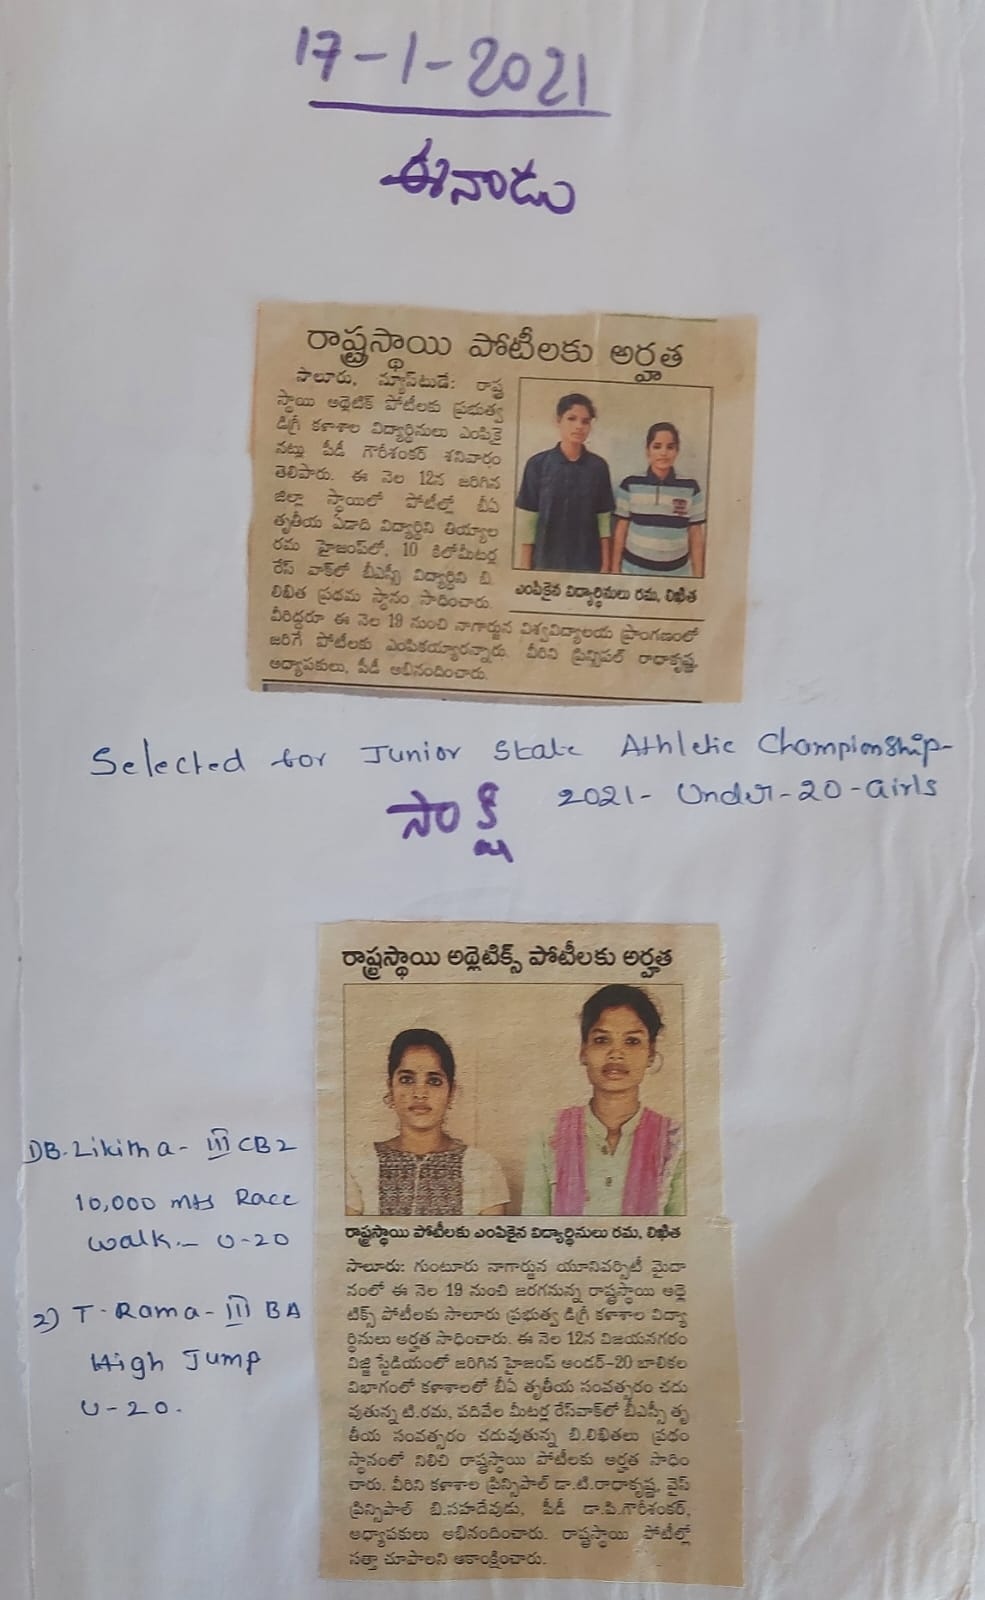 17-1-2021
ఈనాడు
రాష్ట్రస్థాయి పోటీలకు అర్హత
సాలూరు, న్యూస్‌టుడే: రాష్ట్ర
స్థాయి అథ్లెటిక్ పోటీలకు ప్రభుత్వ
డిగ్రీ కళాశాల విద్యార్థినులు ఎంపికై
నట్లు పీడీ గౌరీశంకర్ శనివారం
తెలిపారు. ఈ నెల 12న జరిగిన
జిల్లా స్థాయిలో పోటీల్లో బీఏ
తృతీయ ఏడాది విద్యార్థిని తియ్యాల
రమ హైజంప్‌లో, 10 కిలోమీటర్ల
రేస్ వాక్‌లో బీఎస్సీ విద్యార్థిని బి.
లిఖిత ప్రథమ స్థానం సాధించారు.
వీరిద్దరూ ఈ నెల 19 నుంచి నాగార్జున విశ్వవిద్యాలయ ప్రాంగణంలో
జరిగే పోటీలకు ఎంపికయ్యారన్నారు. వీరిని ప్రిన్సిపల్ రాధాకృష్ణ,
అధ్యాపకులు, పీడీ అభినందించారు.
ఎంపికైన విద్యార్థినులు రమ, లిఖిత
Selected for Junior State Athletic Championship-
2021- Under-20-Girls
సాక్షి
రాష్ట్రస్థాయి అథ్లెటిక్స్ పోటీలకు అర్హత
రాష్ట్రస్థాయి పోటీలకు ఎంపికైన విద్యార్థినులు రమ, లిఖిత
సాలూరు: గుంటూరు నాగార్జున యూనివర్సిటీ మైదా
నంలో ఈ నెల 19 నుంచి జరగనున్న రాష్ట్రస్థాయి అథ్లె
టిక్స్ పోటీలకు సాలూరు ప్రభుత్వ డిగ్రీ కళాశాల విద్యా
ర్థినులు అర్హత సాధించారు. ఈ నెల 12న విజయనగరం
విజ్జి స్టేడియంలో జరిగిన హైజంప్ అండర్-20 బాలికల
విభాగంలో కళాశాలలో బీఏ తృతీయ సంవత్సరం చదు
వుతున్న టి.రమ, పదివేల మీటర్ల రేస్‌వాక్‌లో బీఎస్సీ తృ
తీయ సంవత్సరం చదువుతున్న బి.లిఖితలు ప్రథం
స్థానంలో నిలిచి రాష్ట్రస్థాయి పోటీలకు అర్హత సాధిం
చారు. వీరిని కళాశాల ప్రిన్సిపాల్ డా.టి.రాధాకృష్ణ, వైస్
ప్రిన్సిపాల్ బి.సహదేవుడు, పీడీ డా.పి.గౌరీశంకర్,
అధ్యాపకులు అభినందించారు. రాష్ట్రస్థాయి పోటీల్లో
సత్తా చూపాలని ఆకాంక్షించారు.
1) B. Likitha - III CBZ
10,000 mts Race
walk - U-20
2) T. Rama - III BA
High Jump
U-20.